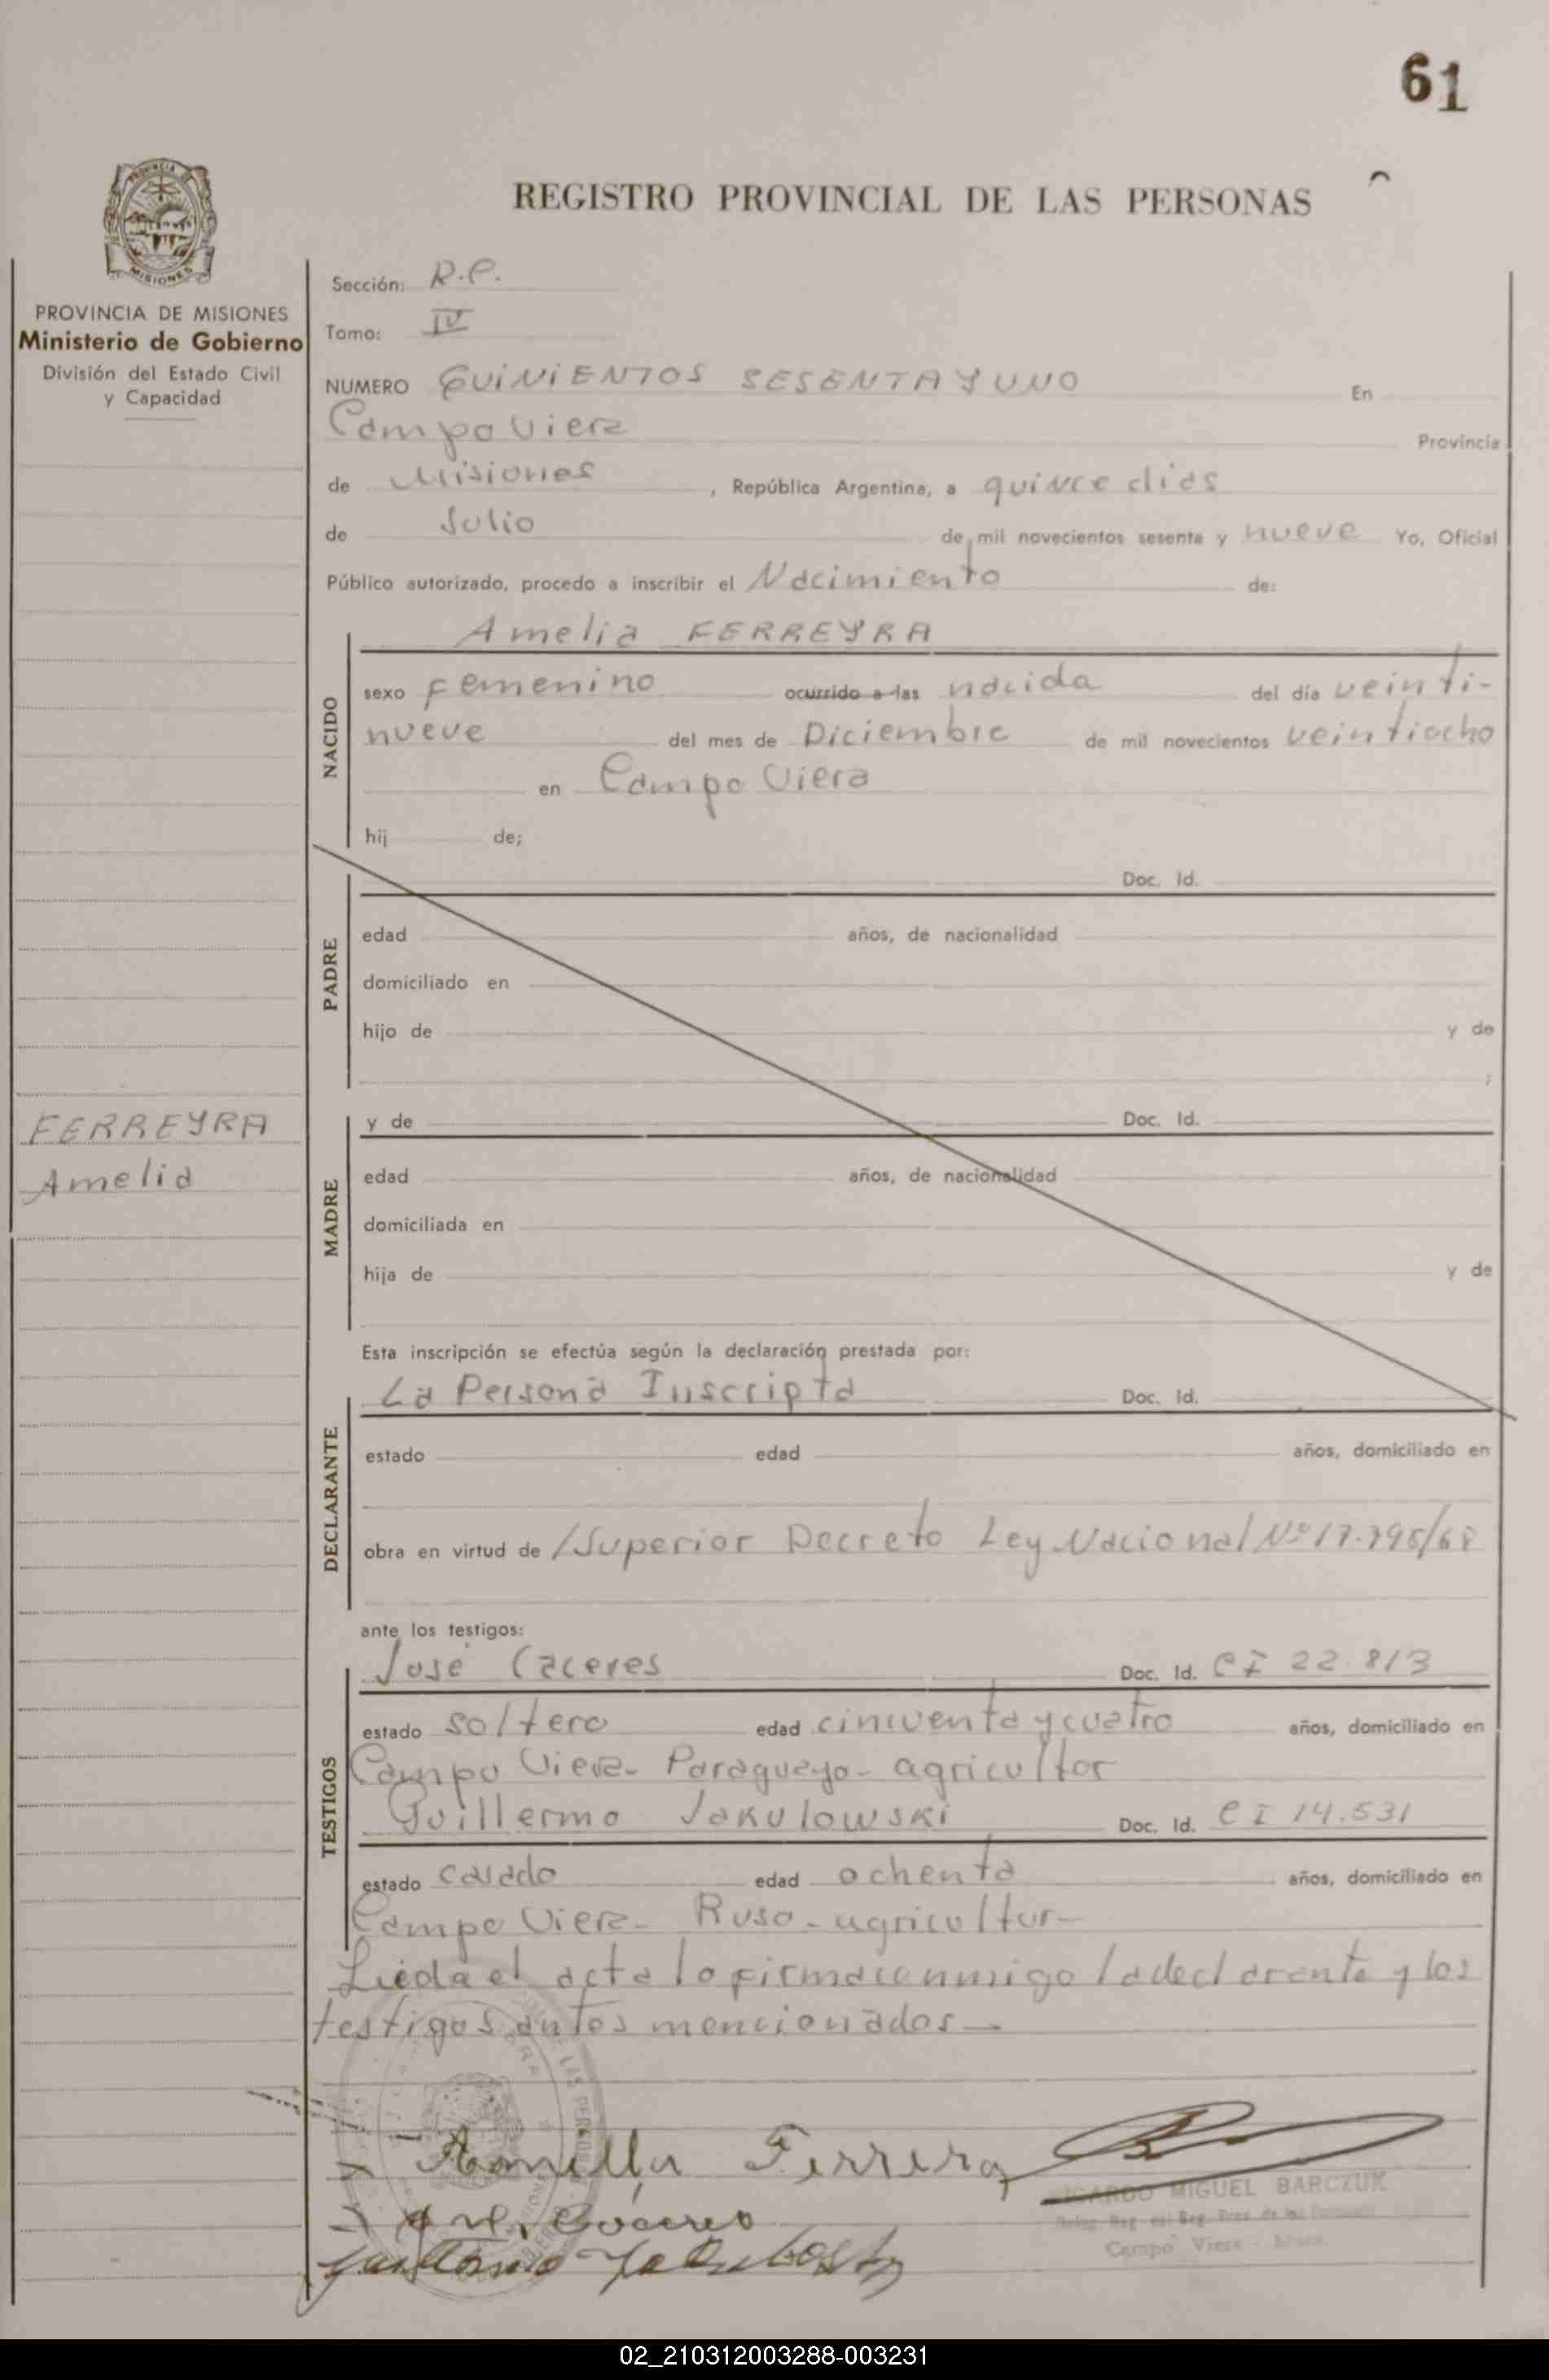 61
PROVINCIA DE
MISIONES
REGISTRO PROVINCIAL DE LAS PERSONAS
PROVINCIA DE MISIONES
Ministerio de Gobierno
División del Estado Civil
y Capacidad
Sección: R.P.
Tomo: IV
NUMERO QUINIENTOS SESENTA Y UNO En
Campo Viera Provincia
de Misiones, República Argentina, a quince días
de Julio de mil novecientos sesenta y nueve Yo, Oficial
Público autorizado, procedo a inscribir el Nacimiento de:
Amelia FERREYRA
NACIDO
sexo Femenino ocurrido a las nacida del día veinti-
nueve del mes de Diciembre de mil novecientos veintiocho
en Campo Viera
hij de;
Doc. Id.
PADRE
edad años, de nacionalidad
domiciliado en
hijo de y de
;
FERREYRA
Amelia
y de Doc. Id.
MADRE
edad años, de nacionalidad
domiciliada en
hija de y de
Esta inscripción se efectúa según la declaración prestada por:
La Persona Inscripta Doc. Id.
DECLARANTE
estado edad años, domiciliado en
obra en virtud de /Superior Decreto Ley Nacional Nº
ante los testigos:
José Caceres Doc. Id. CI 22.813
TESTIGOS
estado soltero edad cincuenta y cuatro años, domiciliado en
Campo Viera- Paraguayo- agricultor
Guillermo Jakulowski Doc. Id. CI 14.531
estado casado edad ochenta años, domiciliado en
Campo Viera- Ruso- agricultor-
Lieda el acta lo firma conmigo la declarante y los
testigos antes mencionados-
Ferrera
RICARDO MIGUEL BARCZUK
Campo Viera -
02_210312003288-003231